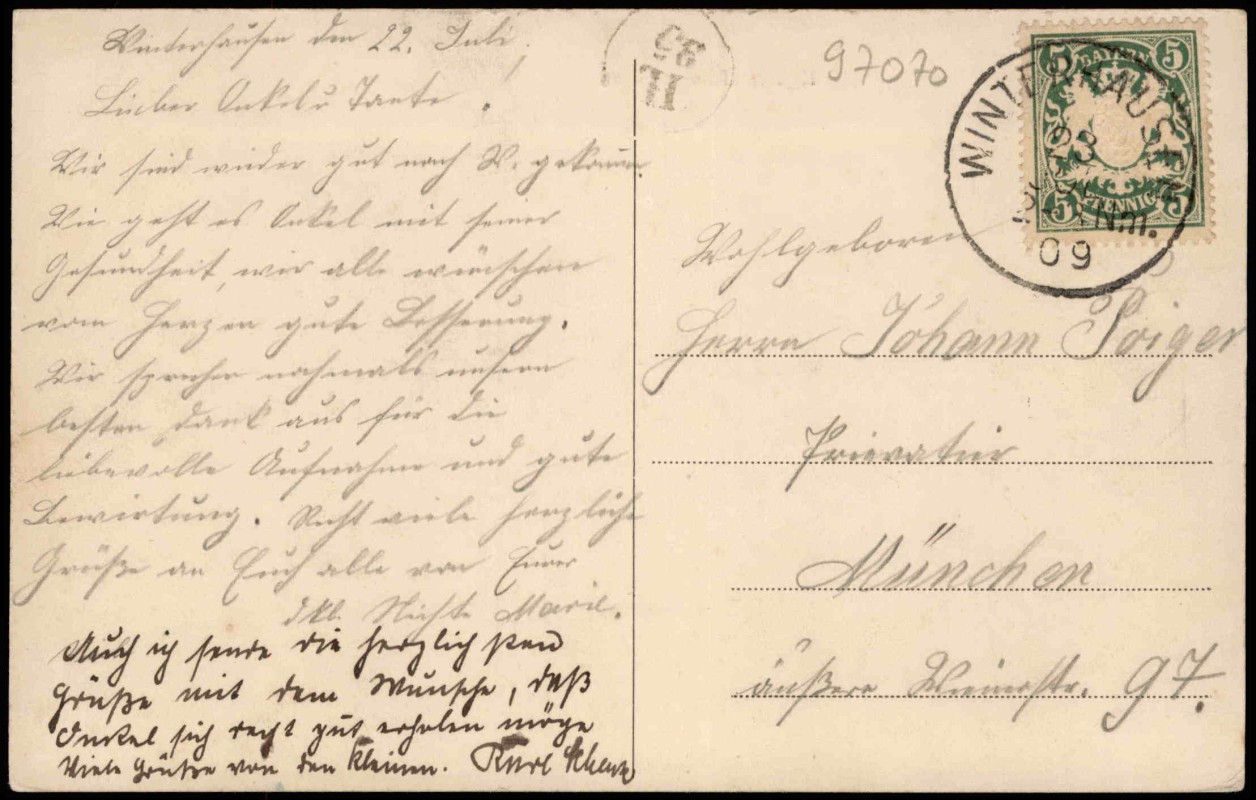 Winterhausen den 22. Juli
Lieber Onkel u Tante !
Wir sind wieder gut nach W. gekommen.
Wie geht es Onkel mit seiner
Gesundheit, wir alle wünschen
vom Herzen gute Besserung.
Wir sprechen nochmals unsern
besten Dank aus für die
liebevolle Aufnahme und gute
Bewirtung. Recht viele herzliche
Grüße an Euch alle von Eurer
dkb. Nichte Marie.
Auch ich sende die herzlichsten
Grüße mit dem Wunsche, daß
Onkel sich recht gut erholen möge
Viele Grüße von den Kleinen. Karl
II
97070
BAYERN
5 5
5 PFENNIG 5
WINTERHAUSEN
23
Nm.
09
Wohlgeboren
Herrn Johann Poiger
Privatier
München
äußere Wienerstr. 97.